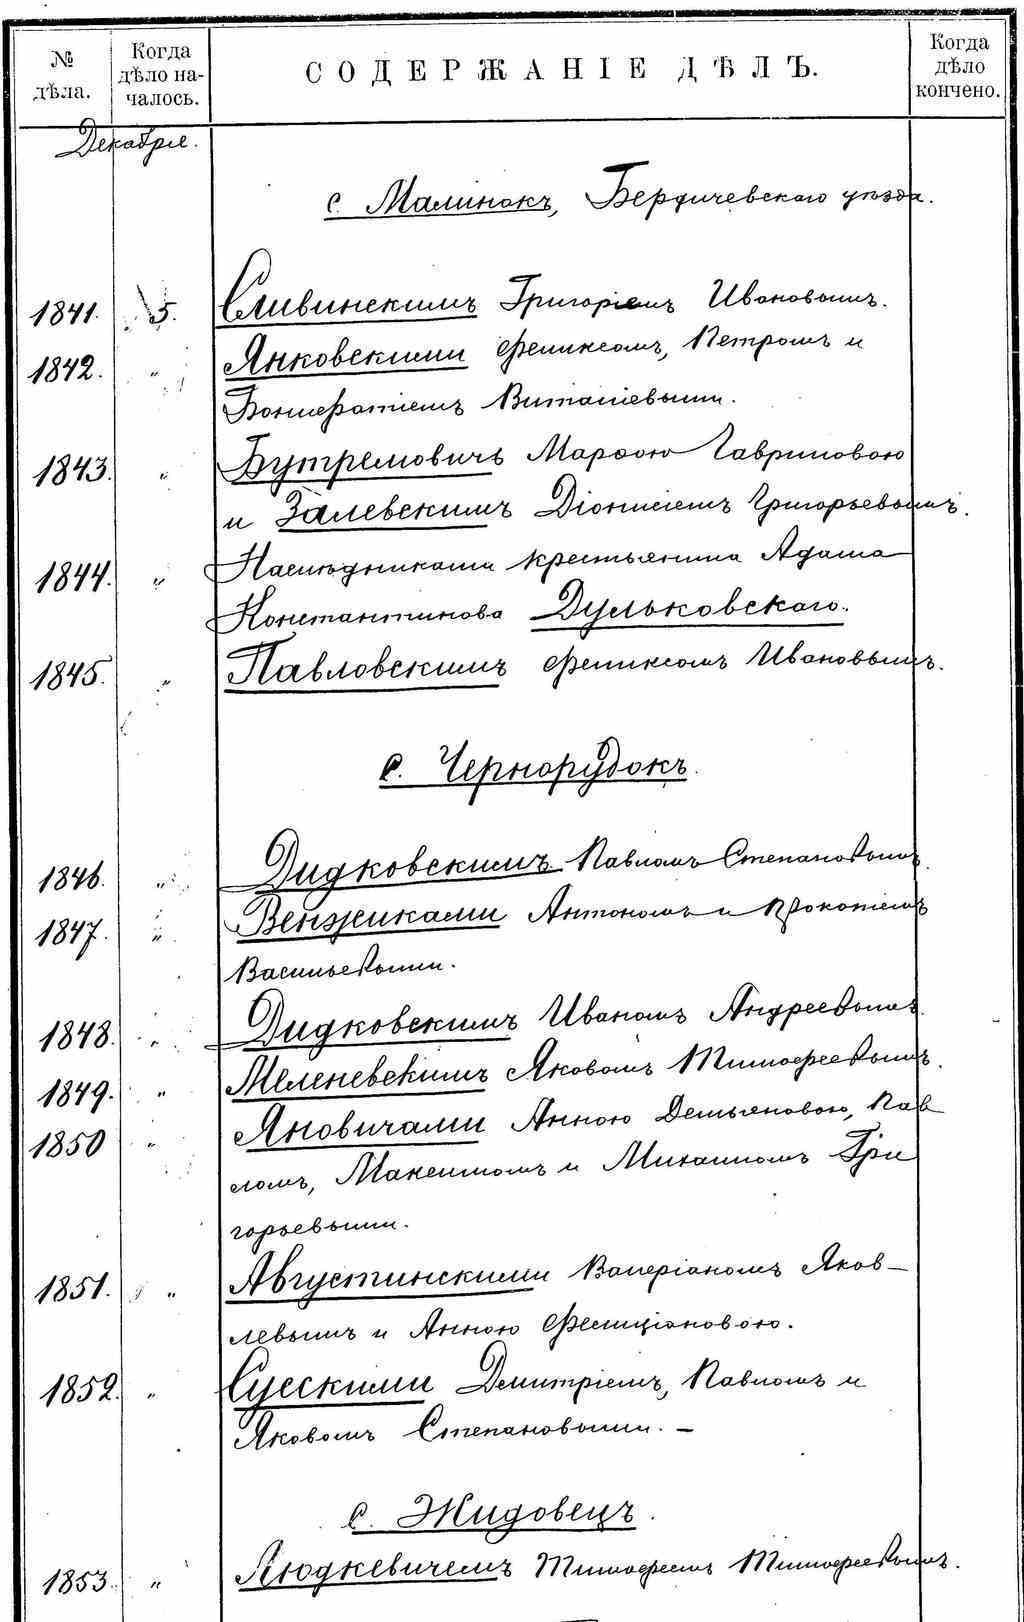 № дѣла.
Когда дѣло на-чалось.
СОДЕРЖАНІЕ ДѢЛЪ.
Когда дѣло кончено.
Декабрѣ.
с. Малинокъ, Бердичевскаго уѣзда.
1841. 5. Сливинскимъ Григоріемъ Ивановымъ.
1842. " Янковскими Феликсомъ, Петромъ и
Бонифатіемъ Виталіевыми.
1843. " Бутремовичъ Марѳою Гавриловою
и Залевскимъ Діонисіемъ Григорьевымъ.
1844. " Наслѣдниками крестьянина Адама
Константинова Дульковскаго.
1845. " Павловскимъ Феликсомъ Ивановымъ.
с. Чернорудокъ.
1846. " Дидковскимъ Павломъ Степановымъ.
1847. " Венжиками Антономъ и Прокопіемъ
Васильевыми.
1848. " Дидковскимъ Иваномъ Андреевымъ.
1849. " Меленевскимъ Яковомъ Тимофеевымъ.
1850 " Яновичами Анною Демьяновою, Пав
ломъ, Максимомъ и Михаиломъ Гри
горьевыми.
1851. " Августинскими Валеріаномъ Яков-
левымъ и Анною Фелиціановою.
1852. " Сусскими Димитріемъ, Павломъ и
Яковомъ Степановыми. –
с. Жидовецъ.
1853. " Людкевичемъ Тимофеемъ Тимофеевымъ.